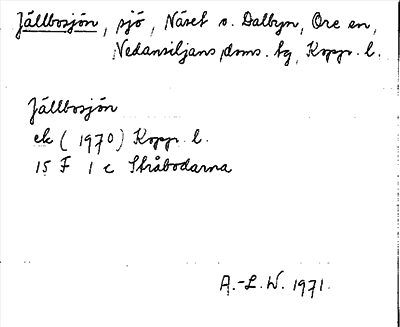 Jällbosjön, sjö, Näset o. Dalbyn, Ore sn,
Nedansiljans doms. tg, Koppr. l.
Jällbosjön
ek (1970) Koppr. l.
15 F 1 c Stråbodarna
A.-L. W. 1971.